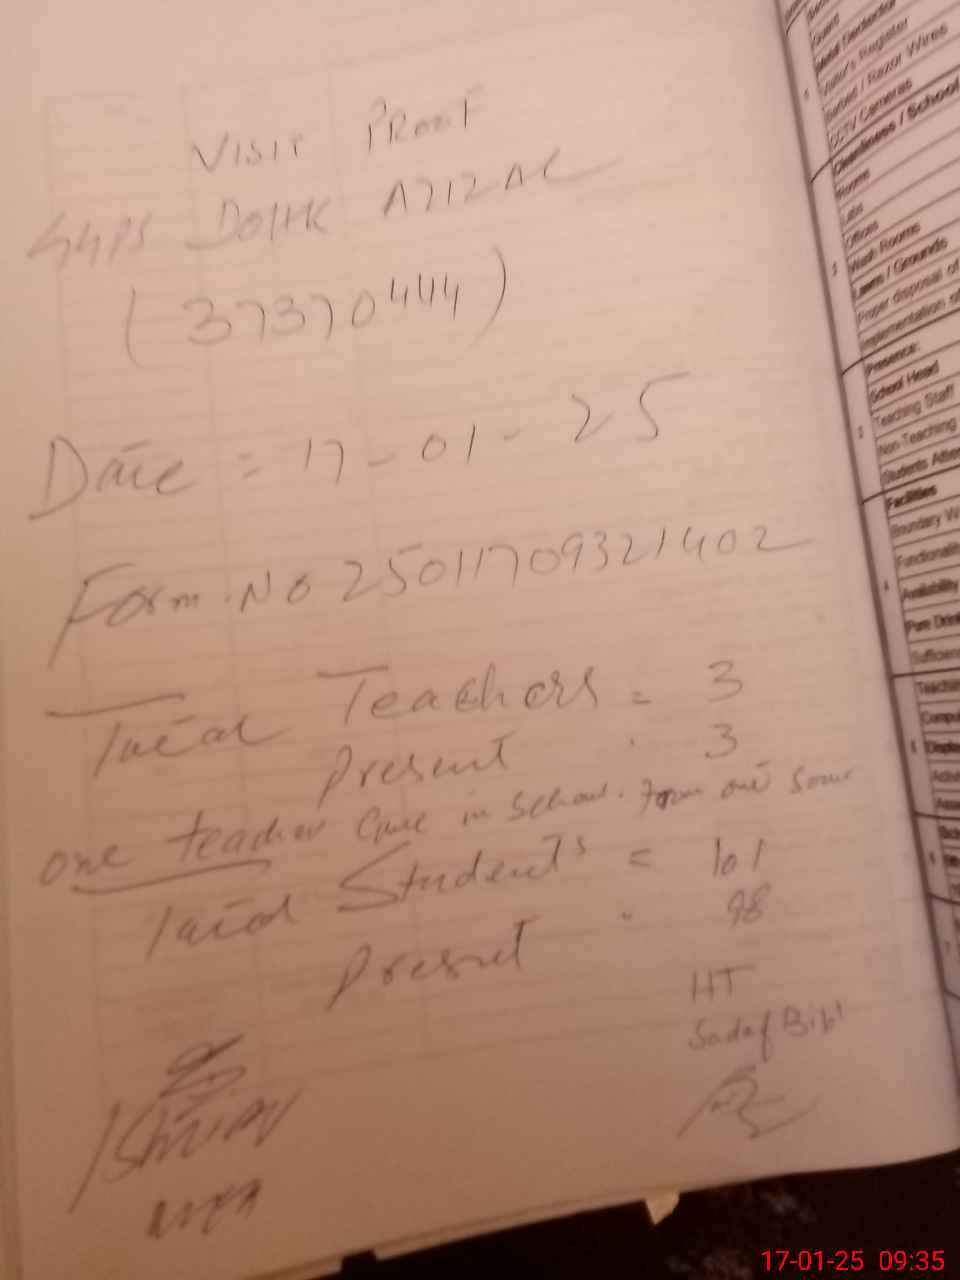 VISIT PROOF
GGPS DOHK AZIZ AL
(37370444)
Date = 17-01-25
Form.No 25011709321402
Total Teachers = 3
Present : 3
one teacher in school. from
Total Students = 101
Present : 98
HT
Sadaf Bibi
MEA
Guard
Metal Detector
Visitor's Register
Barbed / Razor Wires
CCTV Cameras
Cleanliness / School
Rooms
Labs
Offices
Wash Rooms
Lawns / Grounds
Proper disposal of
Implementation of
Presence:
School Head
Teaching Staff
Non Teaching
Students Atten
Facilities
Boundary W
Functionalit
Availability
Pure Drin
Sufficien
Teachin
Compu
Displa
17-01-25 09:35